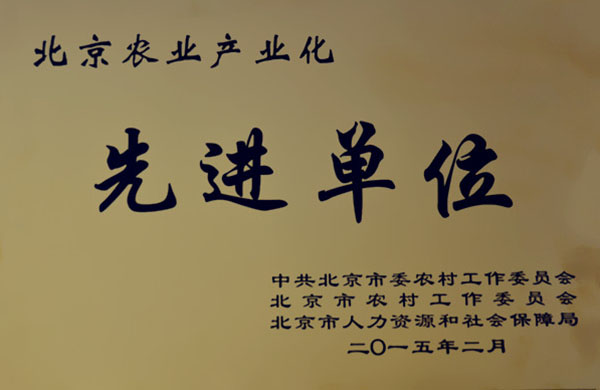 北京农业产业化
先进单位
中共北京市委农村工作委员会
北京市农村工作委员会
北京市人力资源和社会保障局
二〇一五年二月